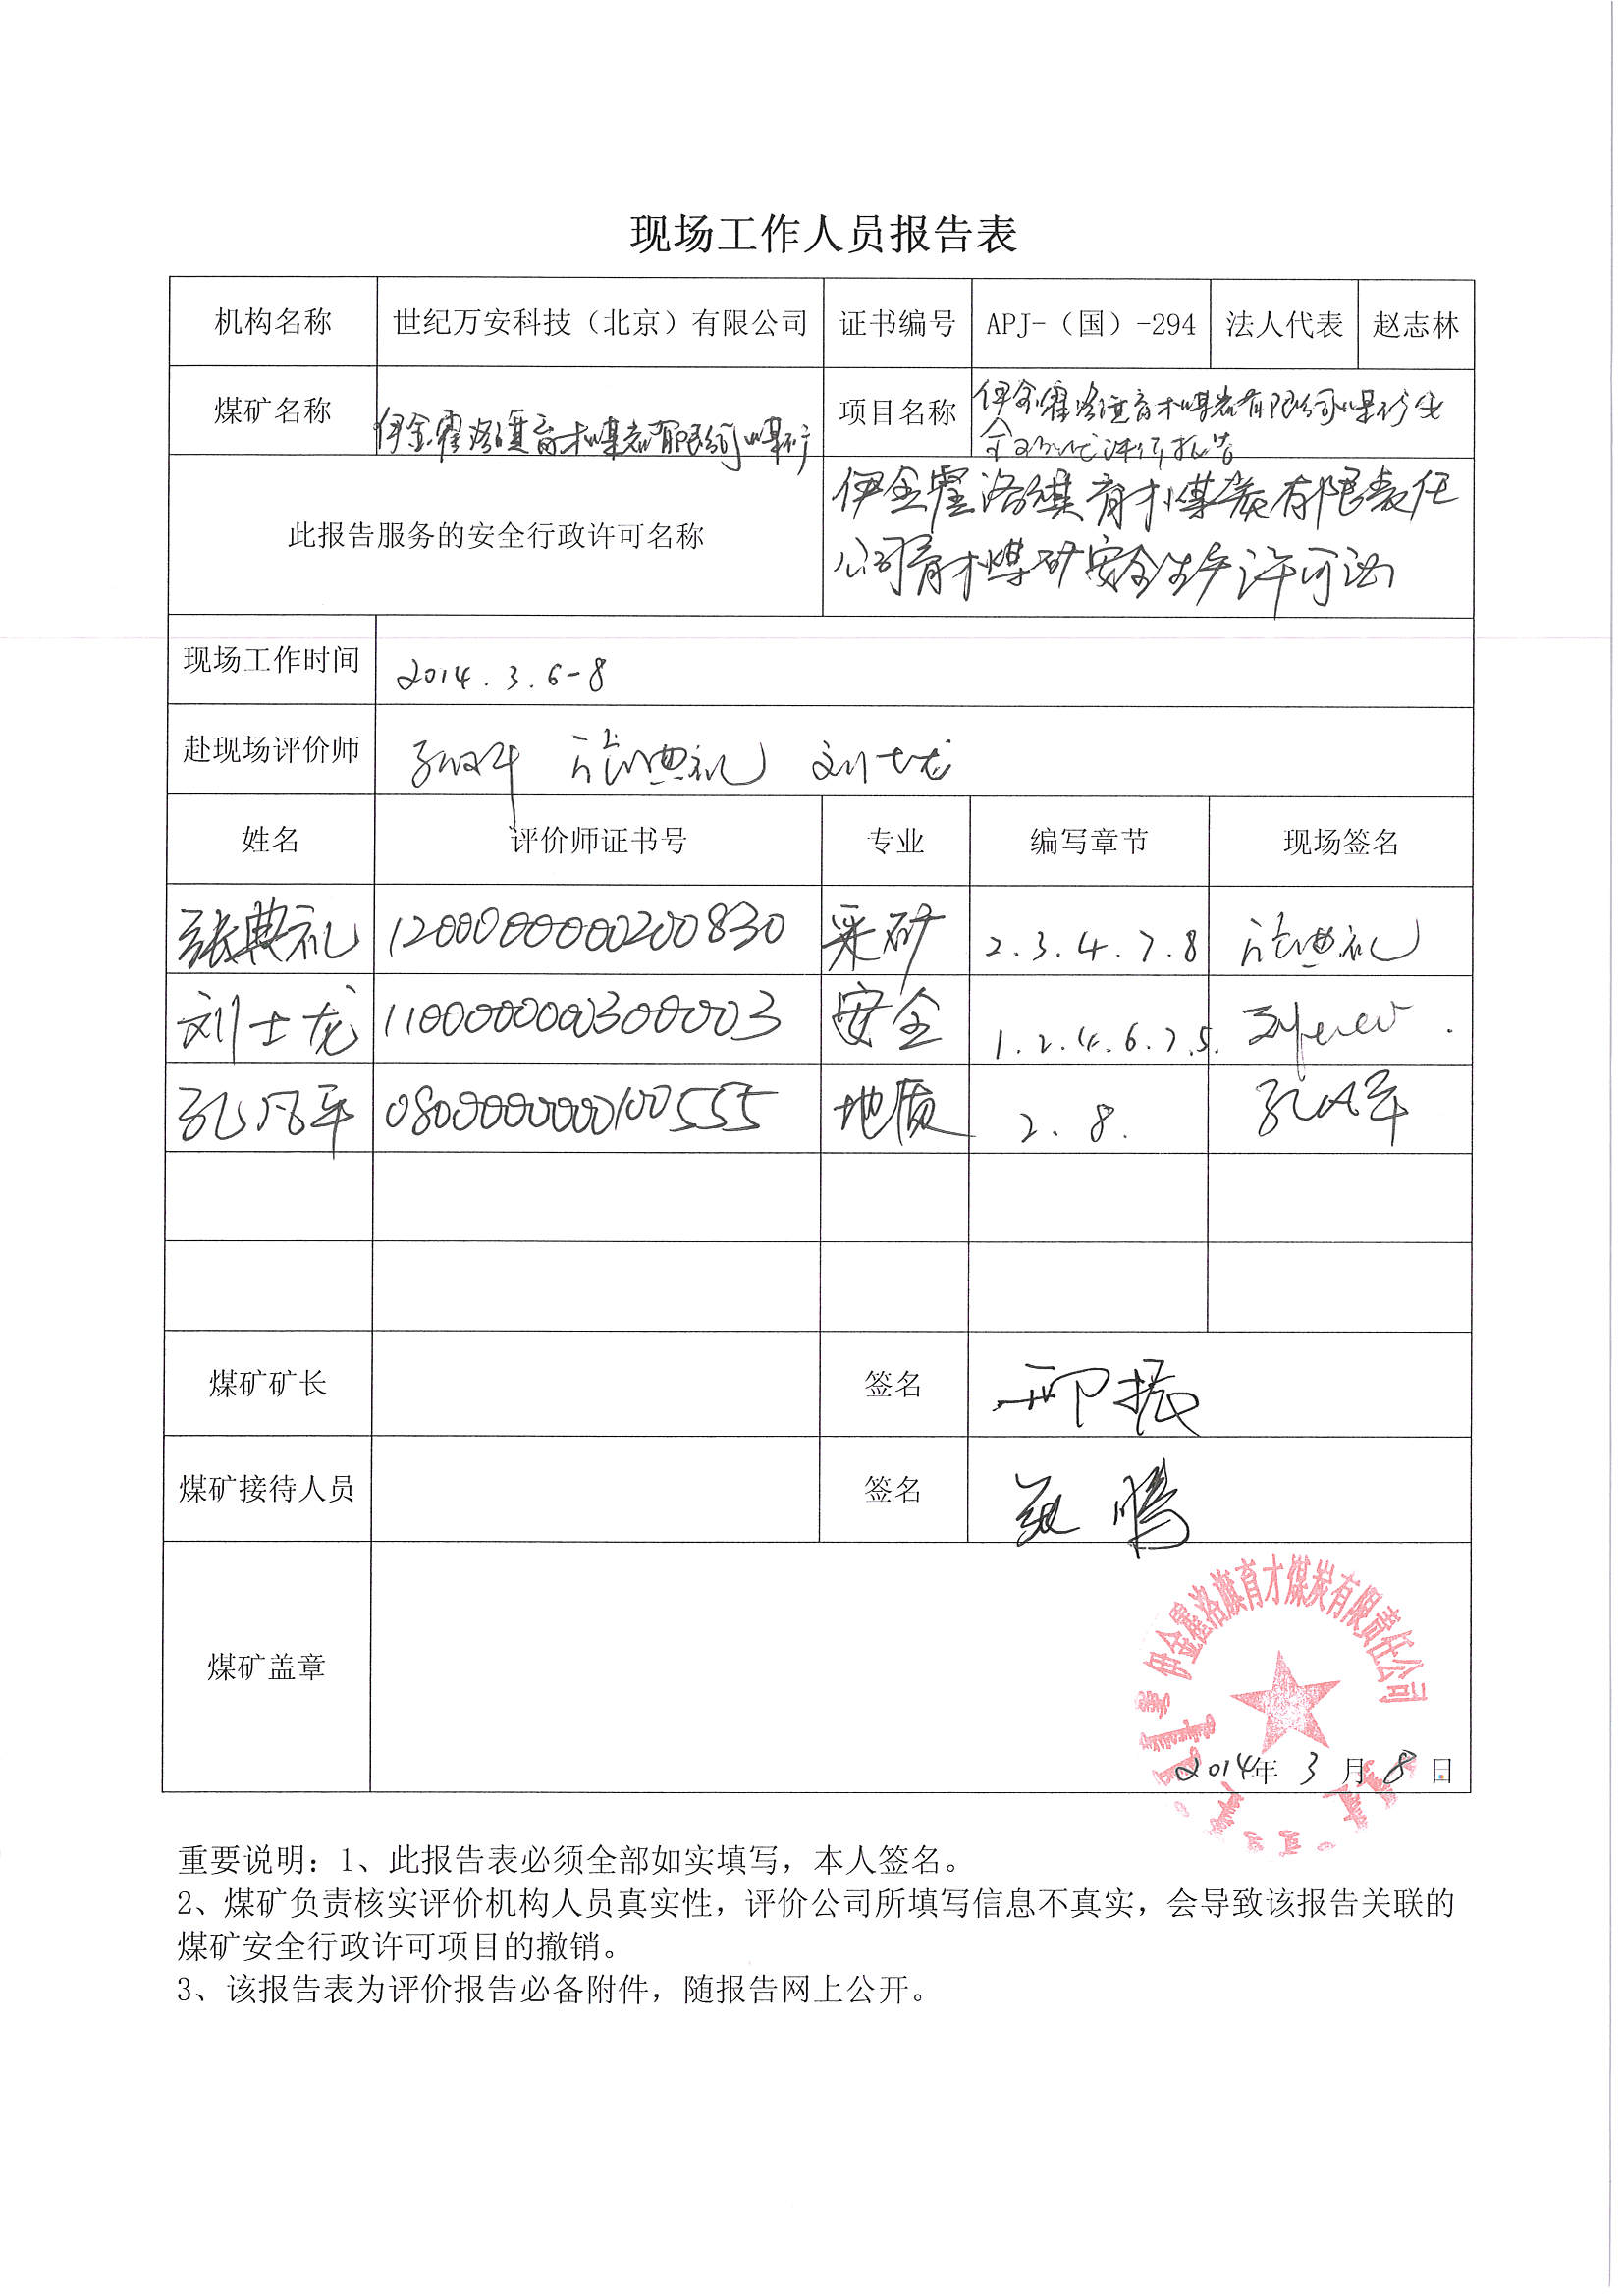 现场工作人员报告表
机构名称 世纪万安科技（北京）有限公司 证书编号 APJ-（国）-294 法人代表 赵志林
煤矿名称 伊金霍洛旗育才煤炭有限公司煤矿 项目名称 伊金霍洛旗育才煤炭有限公司煤矿安
全现状评价报告
此报告服务的安全行政许可名称 伊金霍洛旗育才煤炭有限责任
公司育才煤矿安全生产许可证
现场工作时间 2014.3.6-8
赴现场评价师 张典礼 刘士龙
姓名 评价师证书号 专业 编写章节 现场签名
张典礼 1200000000200830 采矿 2.3.4.7.8 张典礼
刘士龙 1100000000300003 安全 1.2.4.6.7.5.
孔凡平 0800000000100555 地质 2.8. 孔凡平
煤矿矿长 签名 邢振
煤矿接待人员 签名 鹏
伊金霍洛旗育才煤炭有限责任公司
煤矿盖章
2014年3月8日
重要说明：1、此报告表必须全部如实填写，本人签名。
2、煤矿负责核实评价机构人员真实性，评价公司所填写信息不真实，会导致该报告关联的
煤矿安全行政许可项目的撤销。
3、该报告表为评价报告必备附件，随报告网上公开。